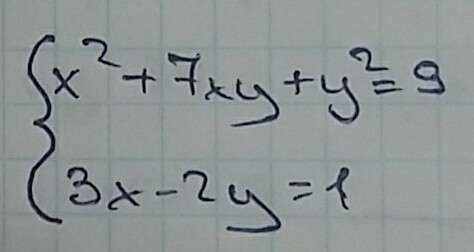 x² + 7xy + y² = 9
3x - 2y = 1